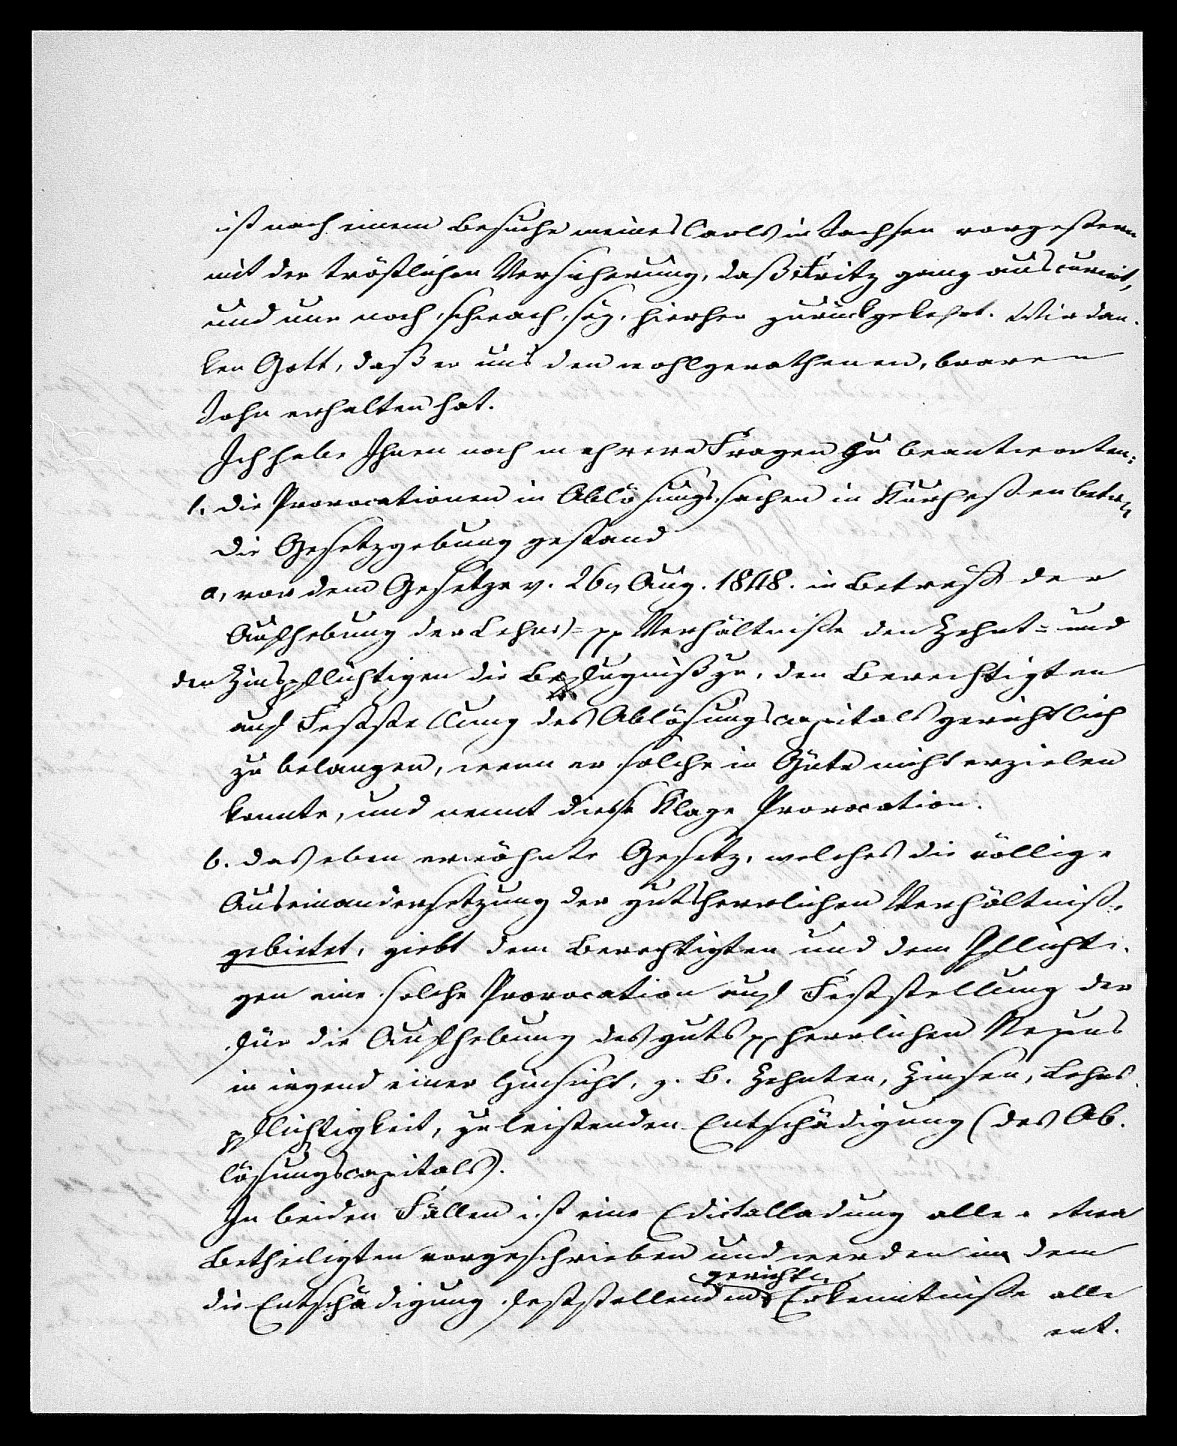 ist nach einem Besuche meines Carls in Sachsen vorgestern
mit der tröstlichen Versicherung, daß Fritz ganz auscurirt,
und nur noch schwach sey, hierher zurückgekehrt. Wir dan-
ken Gott, daß er uns den wohlgerathenen, braven
Sohn erhalten hat.
Ich habe Ihnen noch mehrere Fragen zu beantworten:
1. die Provocationen in Ablösungssachen in Kurhessen betr.
Die Gesetzgebung gestand
a, vor dem Gesetze v. 26n Aug. 1848. in Betreff der
Aufhebung der Lehns- pp Verhältnisse den Zehnt- und
den Zinspflichtigen die Befugniß zu, den Berechtigten
auf Feststellung des Ablösungscapitals gerichtlich
zu belangen, wenn er solche in Güte nicht erzielen
konnte, und nennt diese Klage Provocation.
b. das eben erwähnte Gesetz, welches die völlige
Auseinandersetzung der gutsherrlichen Verhältnisse
gebietet, giebt dem Berechtigten und dem Pflichti-
gen eine solche Provocation auf Feststellung der
für die Aufhebung des guts pp herrlichen Nexus
in irgend einer Hinsicht, z. B. Zehnten, Zinsen, Lehns-
pflichtigkeit, zu leistenden Entschädigung (des Ab-
lösungscapitals).
In beiden Fällen ist eine Edictalladung aller etwa
Betheiligten vorgeschrieben und werden in dem
gerichtl.
die Entschädigung feststellenden Erkenntnisse alle
ent-